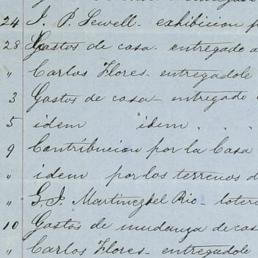 24 J. P. Sewell - exhibicion p
28 Gastos de casa entregado a
" Carlos Flores. entregadole
3 Gastos de casa - entregado
5 idem idem.
9 Contribucion por la Casa
" idem por los terrenos d
" G. I. Martinez del Rio - loter
10 Gastos de mudanza de cas
" Carlos Flores - entregadole